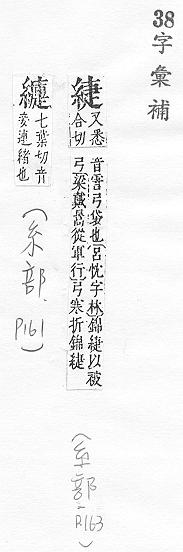 38 字彙補
緁
又悉
合切
音霅弓袋也呂忱字林錦緁以被
弓梁戴暠從軍行弓寒折錦緁
(糸部. P163)
七葉切音
妾連緝也
(糸部. P161)